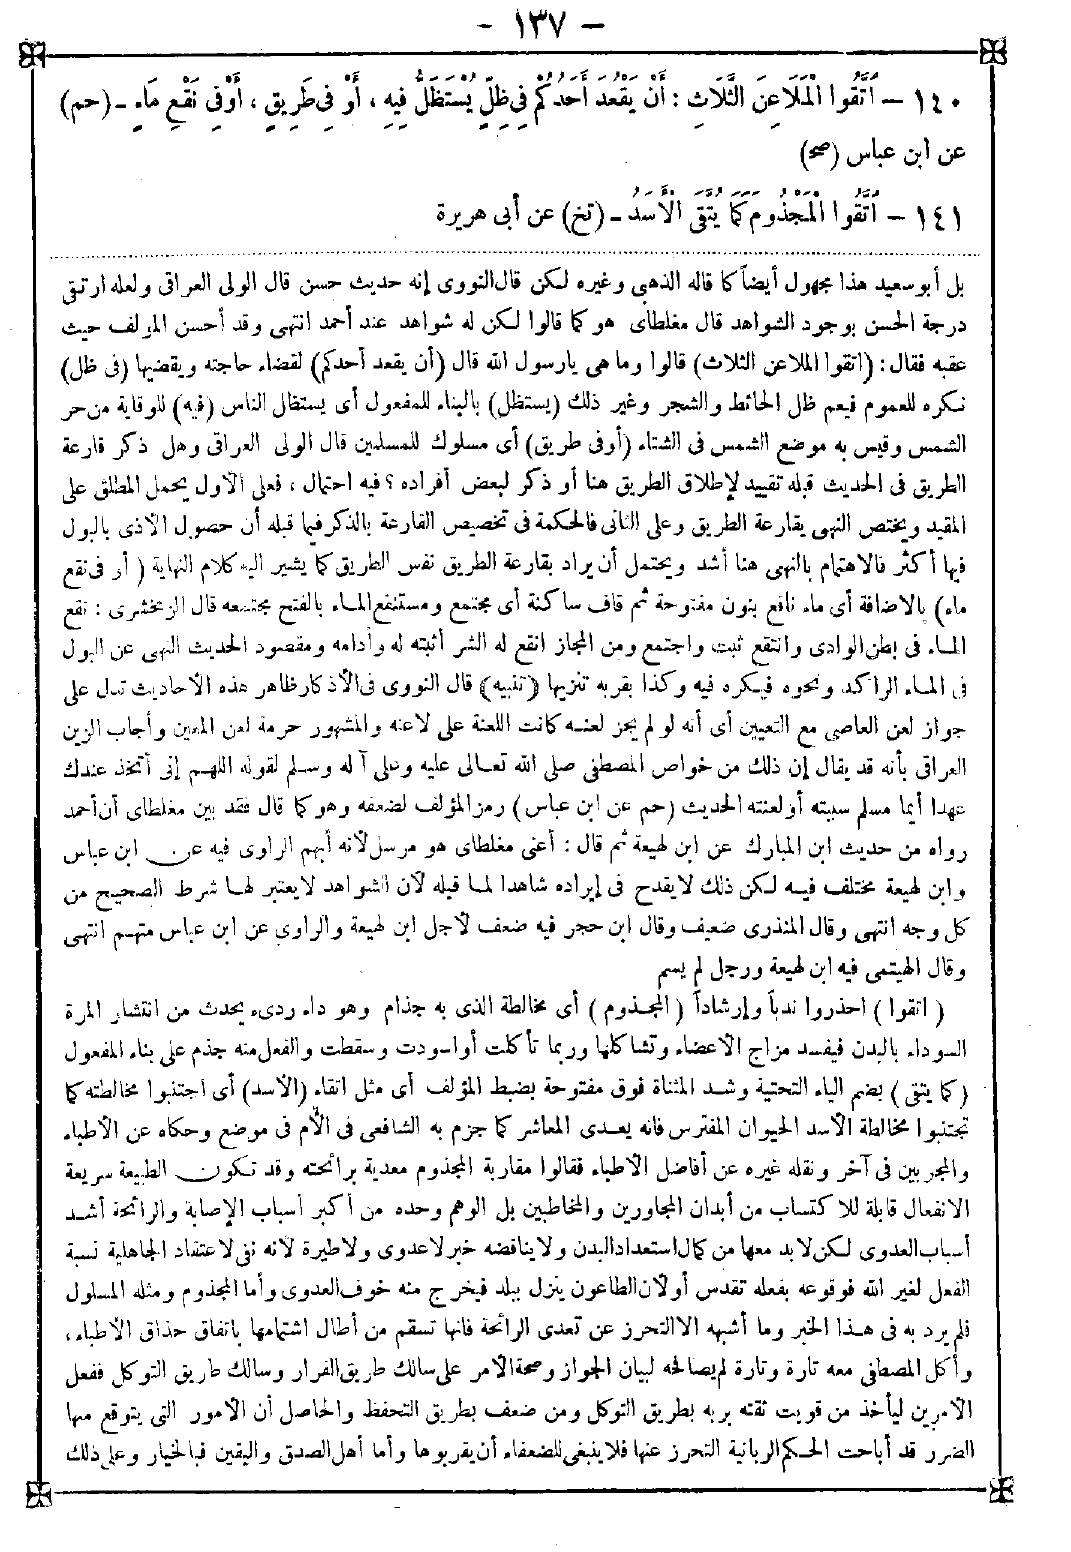 - ١٣٧ -
١٤٠ - اتَّقُوا الْمَلَاعِنَ الثَّلَاثِ : أَنْ يَقْعُدَ أَحَدُكُمْ فِي ظِلٍّ يُسْتَظَلُّ فِيهِ ، أَوْ فِي طَرِيقٍ ، أَوْ فِي نَقْعِ مَاءٍ - (حم)
عن ابن عباس (صح)
١٤١ - اتَّقُوا الْمَجْذُومَ كَمَا يُتَّقَى الْأَسَدُ - (تخ) عن أبى هريرة
بل أبو سعيد هذا مجهول أيضاً كما قاله الذهبى وغيره لكن قال النووى إنه حديث حسن قال الولى العراقى ولعله ارتقى
درجة الحسن بوجود الشواهد قال مغلطاى هو كما قالوا لكن له شواهد عند أحمد انتهى وقد أحسن المؤلف حيث
عقبه فقال : (اتقوا الملاعن الثلاث) قالوا وما هى يارسول الله قال (أن يقعد أحدكم) لقضاء حاجته ويقضيها (فى ظل)
نكره للعموم فيعم ظل الحائط والشجر وغير ذلك (يستظل) بالبناء للمفعول أى يستظل الناس (فيه) للوقاية من حر
الشمس وقيس به موضع الشمس فى الشتاء (أوفى طريق) أى مسلوك للمسلمين قال الولى العراقى وهل ذكر قارعة
الطريق فى الحديث قبله تقييد لإطلاق الطريق هنا أو ذكر لبعض أفراده ؟ فيه احتمال ، فعلى الأول يحمل المطلق على
المقيد ويختص النهى بقارعة الطريق وعلى الثانى فالحكمة فى تخصيص القارعة بالذكر فيما قبله أن حصول الأذى بالبول
فيها أكثر فالاهتمام بالنهى هنا أشد ويحتمل أن يراد بقارعة الطريق نفس الطريق كما يشير اليه كلام النهاية (أو فى نقع
ماء) بالاضافة أى ماء نافع بنون مفتوحة ثم قاف ساكنة أى مجتمع ومستنقع الماء بالفتح مجتمعه قال الزمخشرى : نقع
الماء فى بطن الوادى وانتقع ثبت واجتمع ومن المجاز انقع له الشر أثبته له وأدامه ومقصود الحديث النهى عن البول
فى الماء الراكد ونحوه فيكره فيه وكذا بقربه تنزيها (تنبيه) قال النووى فى الأذكار ظاهر هذه الأحاديث تدل على
جواز لعن العاصى مع التعيين أى أنه لو لم يجز لعنه كانت اللعنة على لاعنه والمشهور حرمة لعن المعين وأجاب الزين
العراقى بأنه قد يقال إن ذلك من خواص المصطفى صلى الله تعالى عليه وعلى آله وسلم لقوله اللهم إنى أتخذ عندك
عهدا أيما مسلم سببته أو لعنته الحديث (حم عن ابن عباس) رمز المؤلف لضعفه وهو كما قال فقد بين مغلطاى أن أحمد
رواه من حديث ابن المبارك عن ابن لهيعة ثم قال : أعنى مغلطاى هو مرسل لأنه أبهم الراوى فيه عن ابن عباس
وابن لهيعة مختلف فيه لكن ذلك لايقدح فى إيراده شاهدا لما قبله لأن الشواهد لايعتبر لها شرط الصحيح من
كل وجه انتهى وقال المنذرى ضعيف وقال ابن حجر فيه ضعف لأجل ابن لهيعة والراوى عن ابن عباس متهم انتهى
وقال الهيتمى فيه ابن لهيعة ورجل لم يسم
(اتقوا) احذروا ندباً وإرشاداً (المجذوم) أى مخالطة الذى به جذام وهو داء ردىء يحدث من انتشار المرة
السوداء بالبدن فيفسد مزاج الأعضاء وتشاكلها وربما تأكلت أو اسودت وسقطت والفعل منه جذم على بناء المفعول
(كما يتقى) بضم الياء التحتية وشد المثناة فوق مفتوحة بضبط المؤلف أى مثل اتقاء (الأسد) أى اجتنبوا مخالطته كما
تجتنبوا مخالطة الأسد الحيوان المفترس فانه يعدى المعاشر كما جزم به الشافعى فى الأم فى موضع وحكاه عن الأطباء
والمجربين فى آخر ونقله غيره عن أفاضل الأطباء فقالوا مقاربة المجذوم معدية برائحته وقد تكون الطبيعة سريعة
الانفعال قابلة للاكتساب من أبدان المجاورين والمخاطبين بل الوهم وحده من أكبر أسباب الإصابة والرائحة أشد
أسباب العدوى لكن لابد معها من كمال استعداد البدن ولا يناقضه خبر لاعدوى ولاطيرة لأنه نفى لاعتقاد الجاهلية نسبة
الفعل لغير الله فوقوعه بفعله تقدس أو لأن الطاعون ينزل ببلد فيخرج منه خوف العدوى وأما المجذوم ومثله المسلول
فلم يرد به فى هذا الخبر وما أشبهه الا التحرز عن تعدى الرائحة فانها تسقم من أطال اشتمامها باتفاق حذاق الأطباء ،
وأكل المصطفى معه تارة وتارة لم يصافحه لبيان الجواز وصحة الأمر على سالك طريق الفرار وسالك طريق التوكل ففعل
الأمرين ليأخذ من قويت ثقته بربه بطريق التوكل ومن ضعف بطريق التحفظ والحاصل أن الأمور التى يتوقع منها
الضرر قد أباحت الحكم الربانية التحرز عنها فلا ينبغى للضعفاء أن يقربوها وأما أهل الصدق واليقين فبالخيار وعلى ذلك